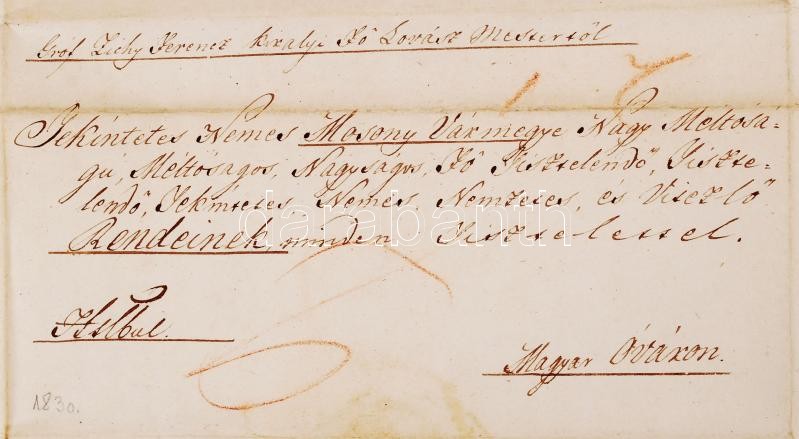 Gróf Zichy Ferencz királyi Fő Lovász Mestertől
Tekintetes Nemes Mosony Vármegye Nagy Méltósá-
gú, Méltóságos, Nagyságos, Fő Tisztelendő, Tiszte-
lendő, Tekintetes, Nemes, Nemzetes, és Vitézlő
Rendeinek, minden Tisztelettel.
darabanth
Magyar Óváron.
1830.